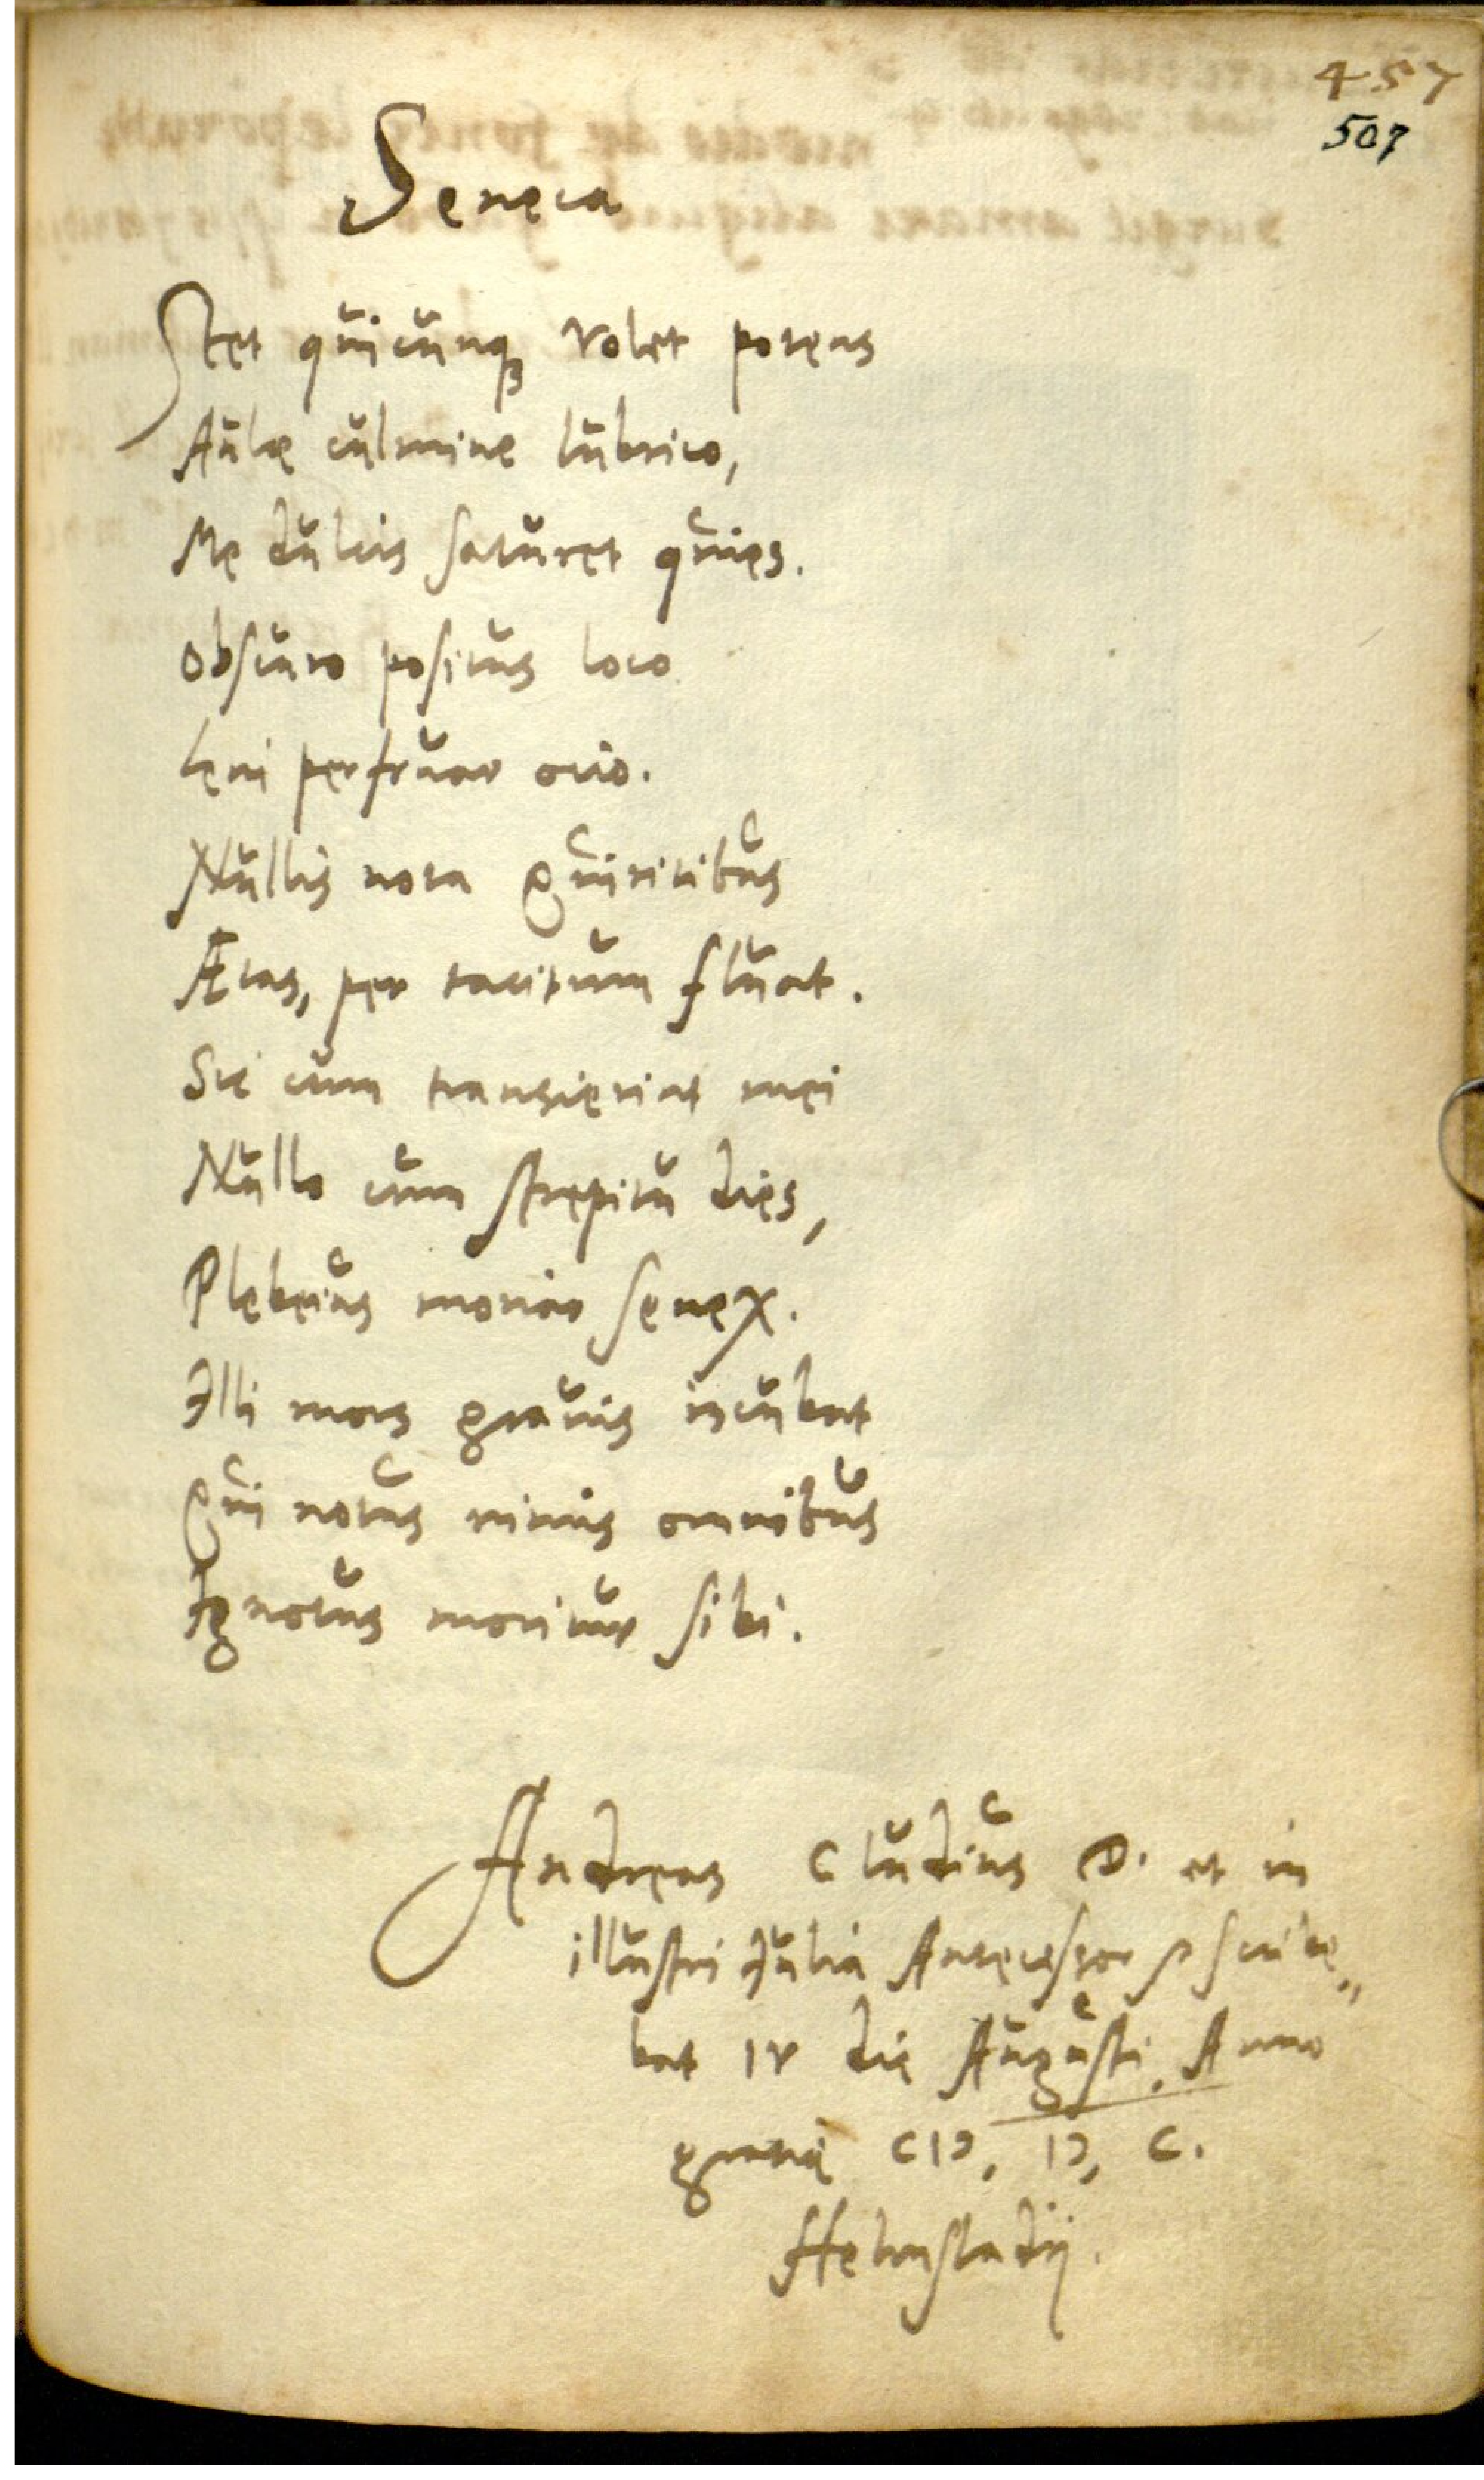 457
507
Seneca
Stet quicunq₃ volet potens
Aulæ culmine lubrico,
Me dulcis saturet quies.
Obscuro positus loco
Leni perfruar otio.
Nullis nota Quiritibus
Ætas, per tacitum fluat.
Sic cum transierint mei
Nullo cum strepitu dies,
Plebeius moriar senex.
Illi mors gravis incubat
Qui notus nimis omnibus
Ignotus moritur sibi.
Andreas Cludius D. et in
illustri Julia Antecessor scribe„
bat IV die Augusti. Anno
gratię CIↃ, IↃ, C.
Helmstadij.